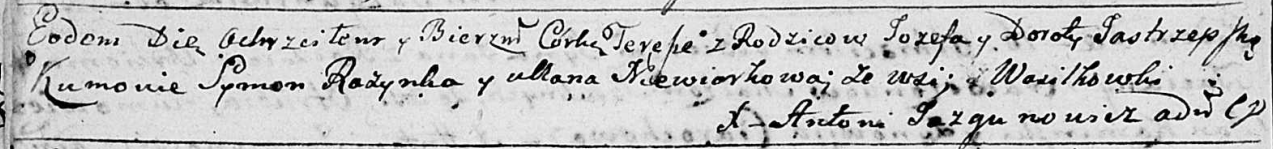 Eodem Die Ochrzciłem y Bierzm Córkę Teresę z Rodzicow Jozefa y Doroty Jastrzepską
Kumowie Symon Rażynka y Ullana Niewiarkowa; ze wsi; Wasilkowki
X Antoni Jazgunowicz adm CP